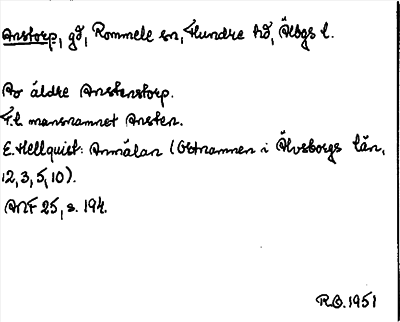 Anstorp, gd, Rommele sn, Flundre hd, Älvbgs l.
Av äldre Anstenstorp.
T.l. mansnamnet Ansten.
E. Hellquist: Anmälan (Ortnamnen i Älvsborgs län,
12, 3, 5, 10).
ANF 25, s. 194.
R.O. 1951